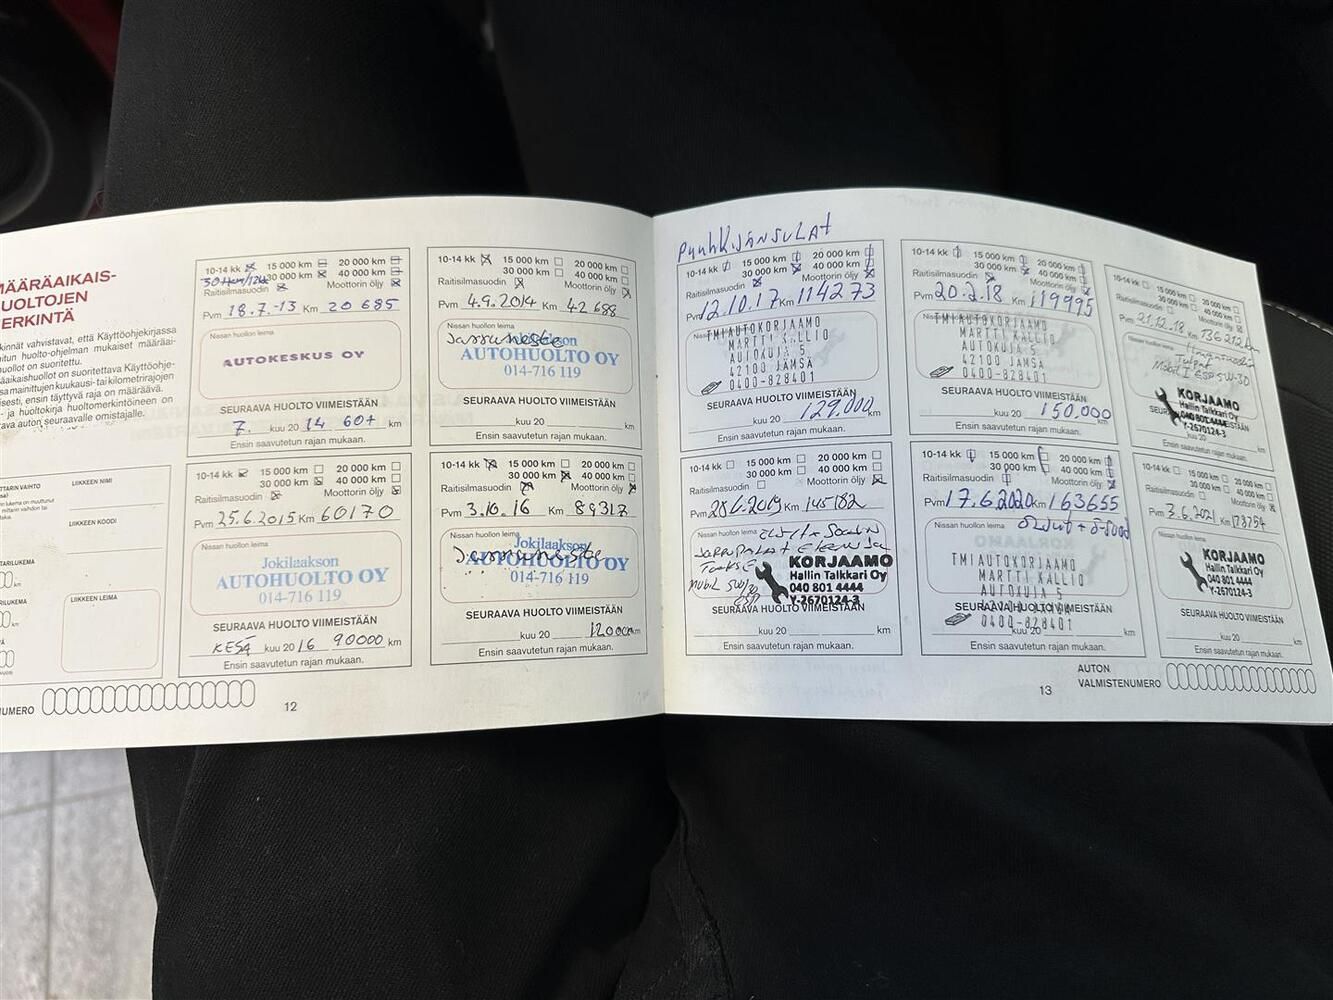 MÄÄRÄAIKAIS-
HUOLTOJEN
MERKINTÄ
kinnät vahvistavat, että Käyttöohjekirjassa
itun huolto-ohjelman mukaiset määräai-
huollot on suoritettu.
aikaishuollot on suoritettava Käyttöohje-
sa mainittujen kuukausi- tai kilometrirajojen
isesti, ensin täyttyvä raja on määräävä.
- ja huoltokirja huoltomerkintöineen on
ava auton seuraavalle omistajalle.
LIIKKEEN NIMI
LIIKKEEN KOODI
LIIKKEEN LEIMA
10-14 kk 15 000 km 20 000 km
30 000 km 40 000 km
Raitisilmasuodin Moottorin öljy
Pvm 18.7.-13 Km 20 685
Nissan huollon leima
AUTOKESKUS OY
SEURAAVA HUOLTO VIIMEISTÄÄN
7. kuu 20 14 60+ km
Ensin saavutetun rajan mukaan.
10-14 kk 15 000 km 20 000 km
30 000 km 40 000 km
Raitisilmasuodin Moottorin öljy
Pvm 25.6.2015 Km 60170
Nissan huollon leima
Jokilaakson
AUTOHUOLTO OY
014-716 119
SEURAAVA HUOLTO VIIMEISTÄÄN
KESÄ kuu 20 16 90000 km
Ensin saavutetun rajan mukaan.
12
10-14 kk 15 000 km 20 000 km
30 000 km 40 000 km
Raitisilmasuodin Moottorin öljy
Pvm 4.9.2014 Km 42 688
Nissan huollon leima
Jarruneste
Jokilaakson
AUTOHUOLTO OY
014-716 119
SEURAAVA HUOLTO VIIMEISTÄÄN
kuu 20 km
Ensin saavutetun rajan mukaan.
10-14 kk 15 000 km 20 000 km
30 000 km 40 000 km
Raitisilmasuodin Moottorin öljy
Pvm 3.10.16 Km 89317
Nissan huollon leima
Jarruneste
Jokilaakson
AUTOHUOLTO OY
014-716 119
SEURAAVA HUOLTO VIIMEISTÄÄN
kuu 20 km
Ensin saavutetun rajan mukaan.
PYYHKIJÄNSULAT
10-14 kk 15 000 km 20 000 km
30 000 km 40 000 km
Raitisilmasuodin Moottorin öljy
Pvm 12.10.17 Km 114273
Nissan huollon leima
TMI AUTOKORJAAMO
MARTTI KALLIO
AUTOKUJA 5
42100 JÄMSÄ
0400-828401
SEURAAVA HUOLTO VIIMEISTÄÄN
kuu 20 129.000 km
Ensin saavutetun rajan mukaan.
10-14 kk 15 000 km 20 000 km
30 000 km 40 000 km
Raitisilmasuodin Moottorin öljy
Pvm 20.2.18 Km 119995
Nissan huollon leima
TMI AUTOKORJAAMO
MARTTI KALLIO
AUTOKUJA 5
42100 JÄMSÄ
0400-828401
SEURAAVA HUOLTO VIIMEISTÄÄN
kuu 20 150.000 km
Ensin saavutetun rajan mukaan.
10-14 kk 15 000 km 20 000 km
30 000 km 40 000 km
Raitisilmasuodin Moottorin öljy
Pvm 21.12.18 Km 136212
Mobil 1 ESP 5W-30
KORJAAMO
Hallin Talkkari Oy
040 801 4444
Y-2670124-3
kuu 20 km
Ensin saavutetun rajan mukaan.
10-14 kk 15 000 km 20 000 km
30 000 km 40 000 km
Raitisilmasuodin Moottorin öljy
Pvm 28.6.2019 Km 145182
Nissan huollon leima
KORJAAMO
Hallin Talkkari Oy
040 801 4444
Y-2670124-3
SEURAAVA HUOLTO VIIMEISTÄÄN
kuu 20 km
Ensin saavutetun rajan mukaan.
10-14 kk 15 000 km 20 000 km
30 000 km 40 000 km
Raitisilmasuodin Moottorin öljy
Pvm 17.6.2020 Km 163655
Nissan huollon leima
TMI AUTOKORJAAMO
MARTTI KALLIO
AUTOKUJA 5
SEURAAVA HUOLTO VIIMEISTÄÄN
0400-828401
kuu 20 km
Ensin saavutetun rajan mukaan.
10-14 kk 15 000 km 20 000 km
30 000 km 40 000 km
Raitisilmasuodin Moottorin öljy
Pvm 3.6.2021 Km 178254
Nissan huollon leima
KORJAAMO
Hallin Talkkari Oy
040 801 4444
Y-2670124-3
SEURAAVA HUOLTO VIIMEISTÄÄN
kuu 20 km
Ensin saavutetun rajan mukaan.
13
AUTON
VALMISTENUMERO